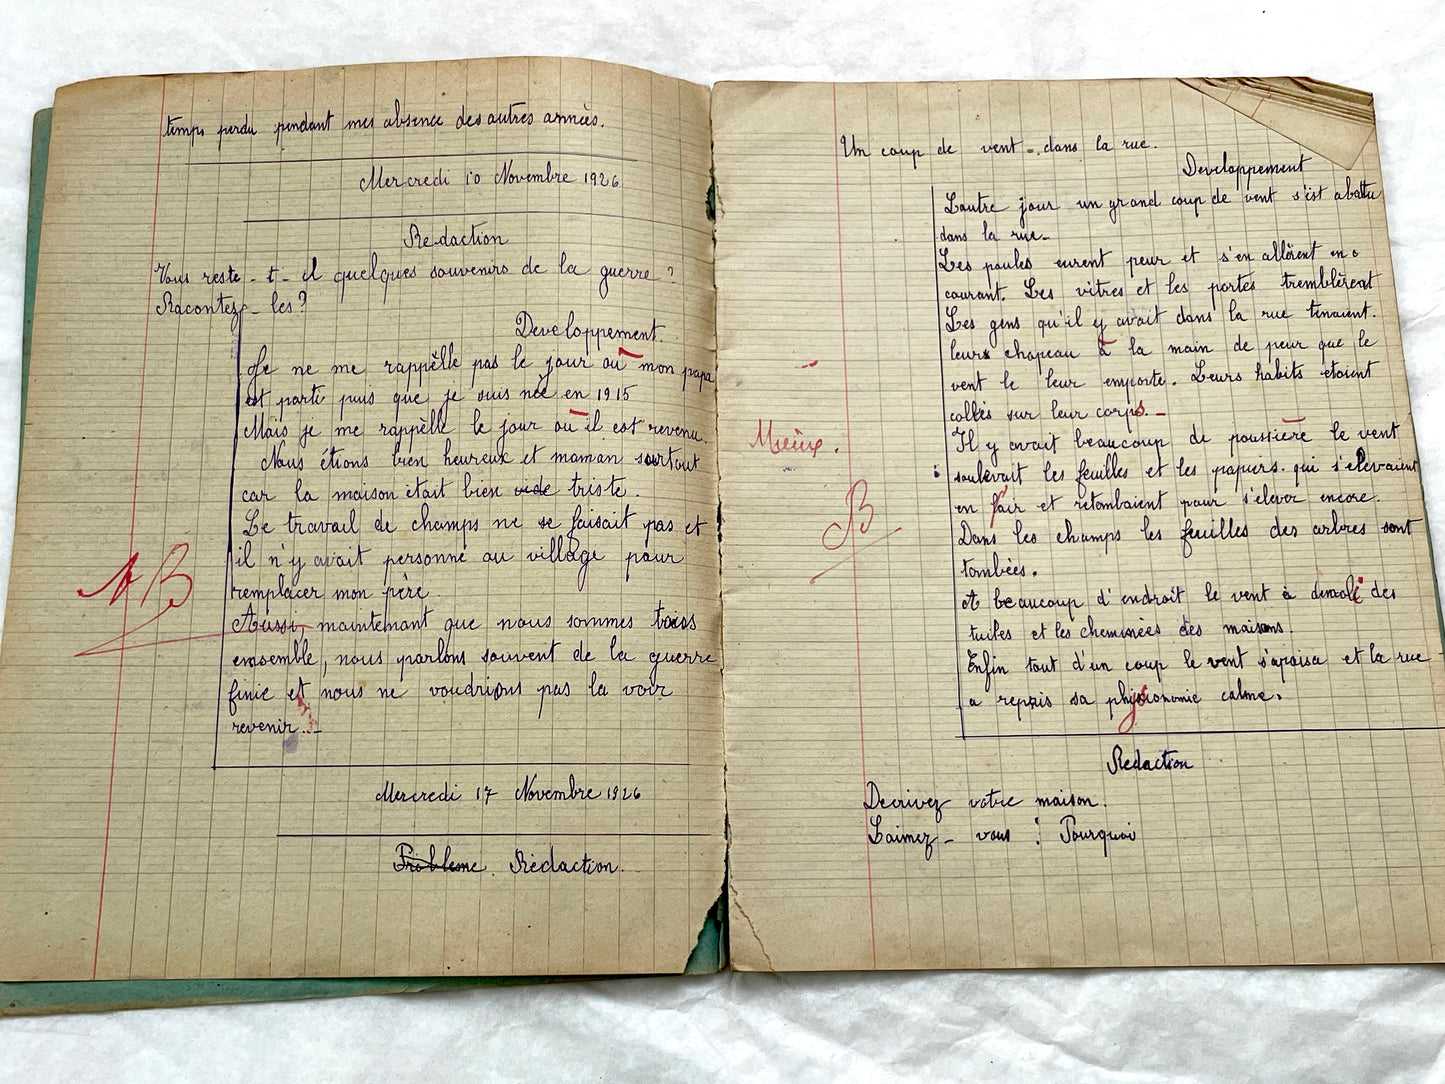 temps perdu pendant mes absence des autres années.
Mercredi 10 Novembre 1926
Redaction
Vous reste-t-il quelques souvenirs de la guerre ?
Racontez-les ?
Developpement.
Je ne me rappèlle pas le jour où mon papa
est parti puis que je suis née en 1915
Mais je me rappèlle le jour où il est revenu.
Nous étions bien heureux et maman surtout
car la maison était bien vide triste.
Le travail de champs ne se faisait pas et
il n'y avait personne au village pour
remplacer mon père.
Aussi, maintenant que nous sommes tous
ensemble, nous parlons souvent de la guerre
finie et nous ne voudrions pas la voir
revenir...
AB
Mercredi 17 Novembre 1926
Problème. Rédaction.
Un coup de vent dans la rue.
Developpement
L'autre jour un grand coup de vent s'est abattu
dans la rue.
Les poules eurent peur et s'en allèrent en
courant. Les vitres et les portes tremblèrent
Les gens qu'il y avait dans la rue tenaient.
leurs chapeau à la main de peur que le
vent le leur emporte. Leurs habits etaient
collés sur leur corps.
Mieux.
Il y avait beaucoup de poussière le vent
soulevait les feuilles et les papiers. qui s'elevaient
en l'air et retombaient pour s'elever encore.
B
Dans les champs les feuilles des arbres sont
tombées.
A beaucoup d'endroit le vent à démoli des
tuiles et les cheminées des maisons.
Enfin tout d'un coup le vent s'apaisa et la rue
a repris sa physionomie calme.
Redaction
Decrivez votre maison.
L'aimez-vous : Pourquoi